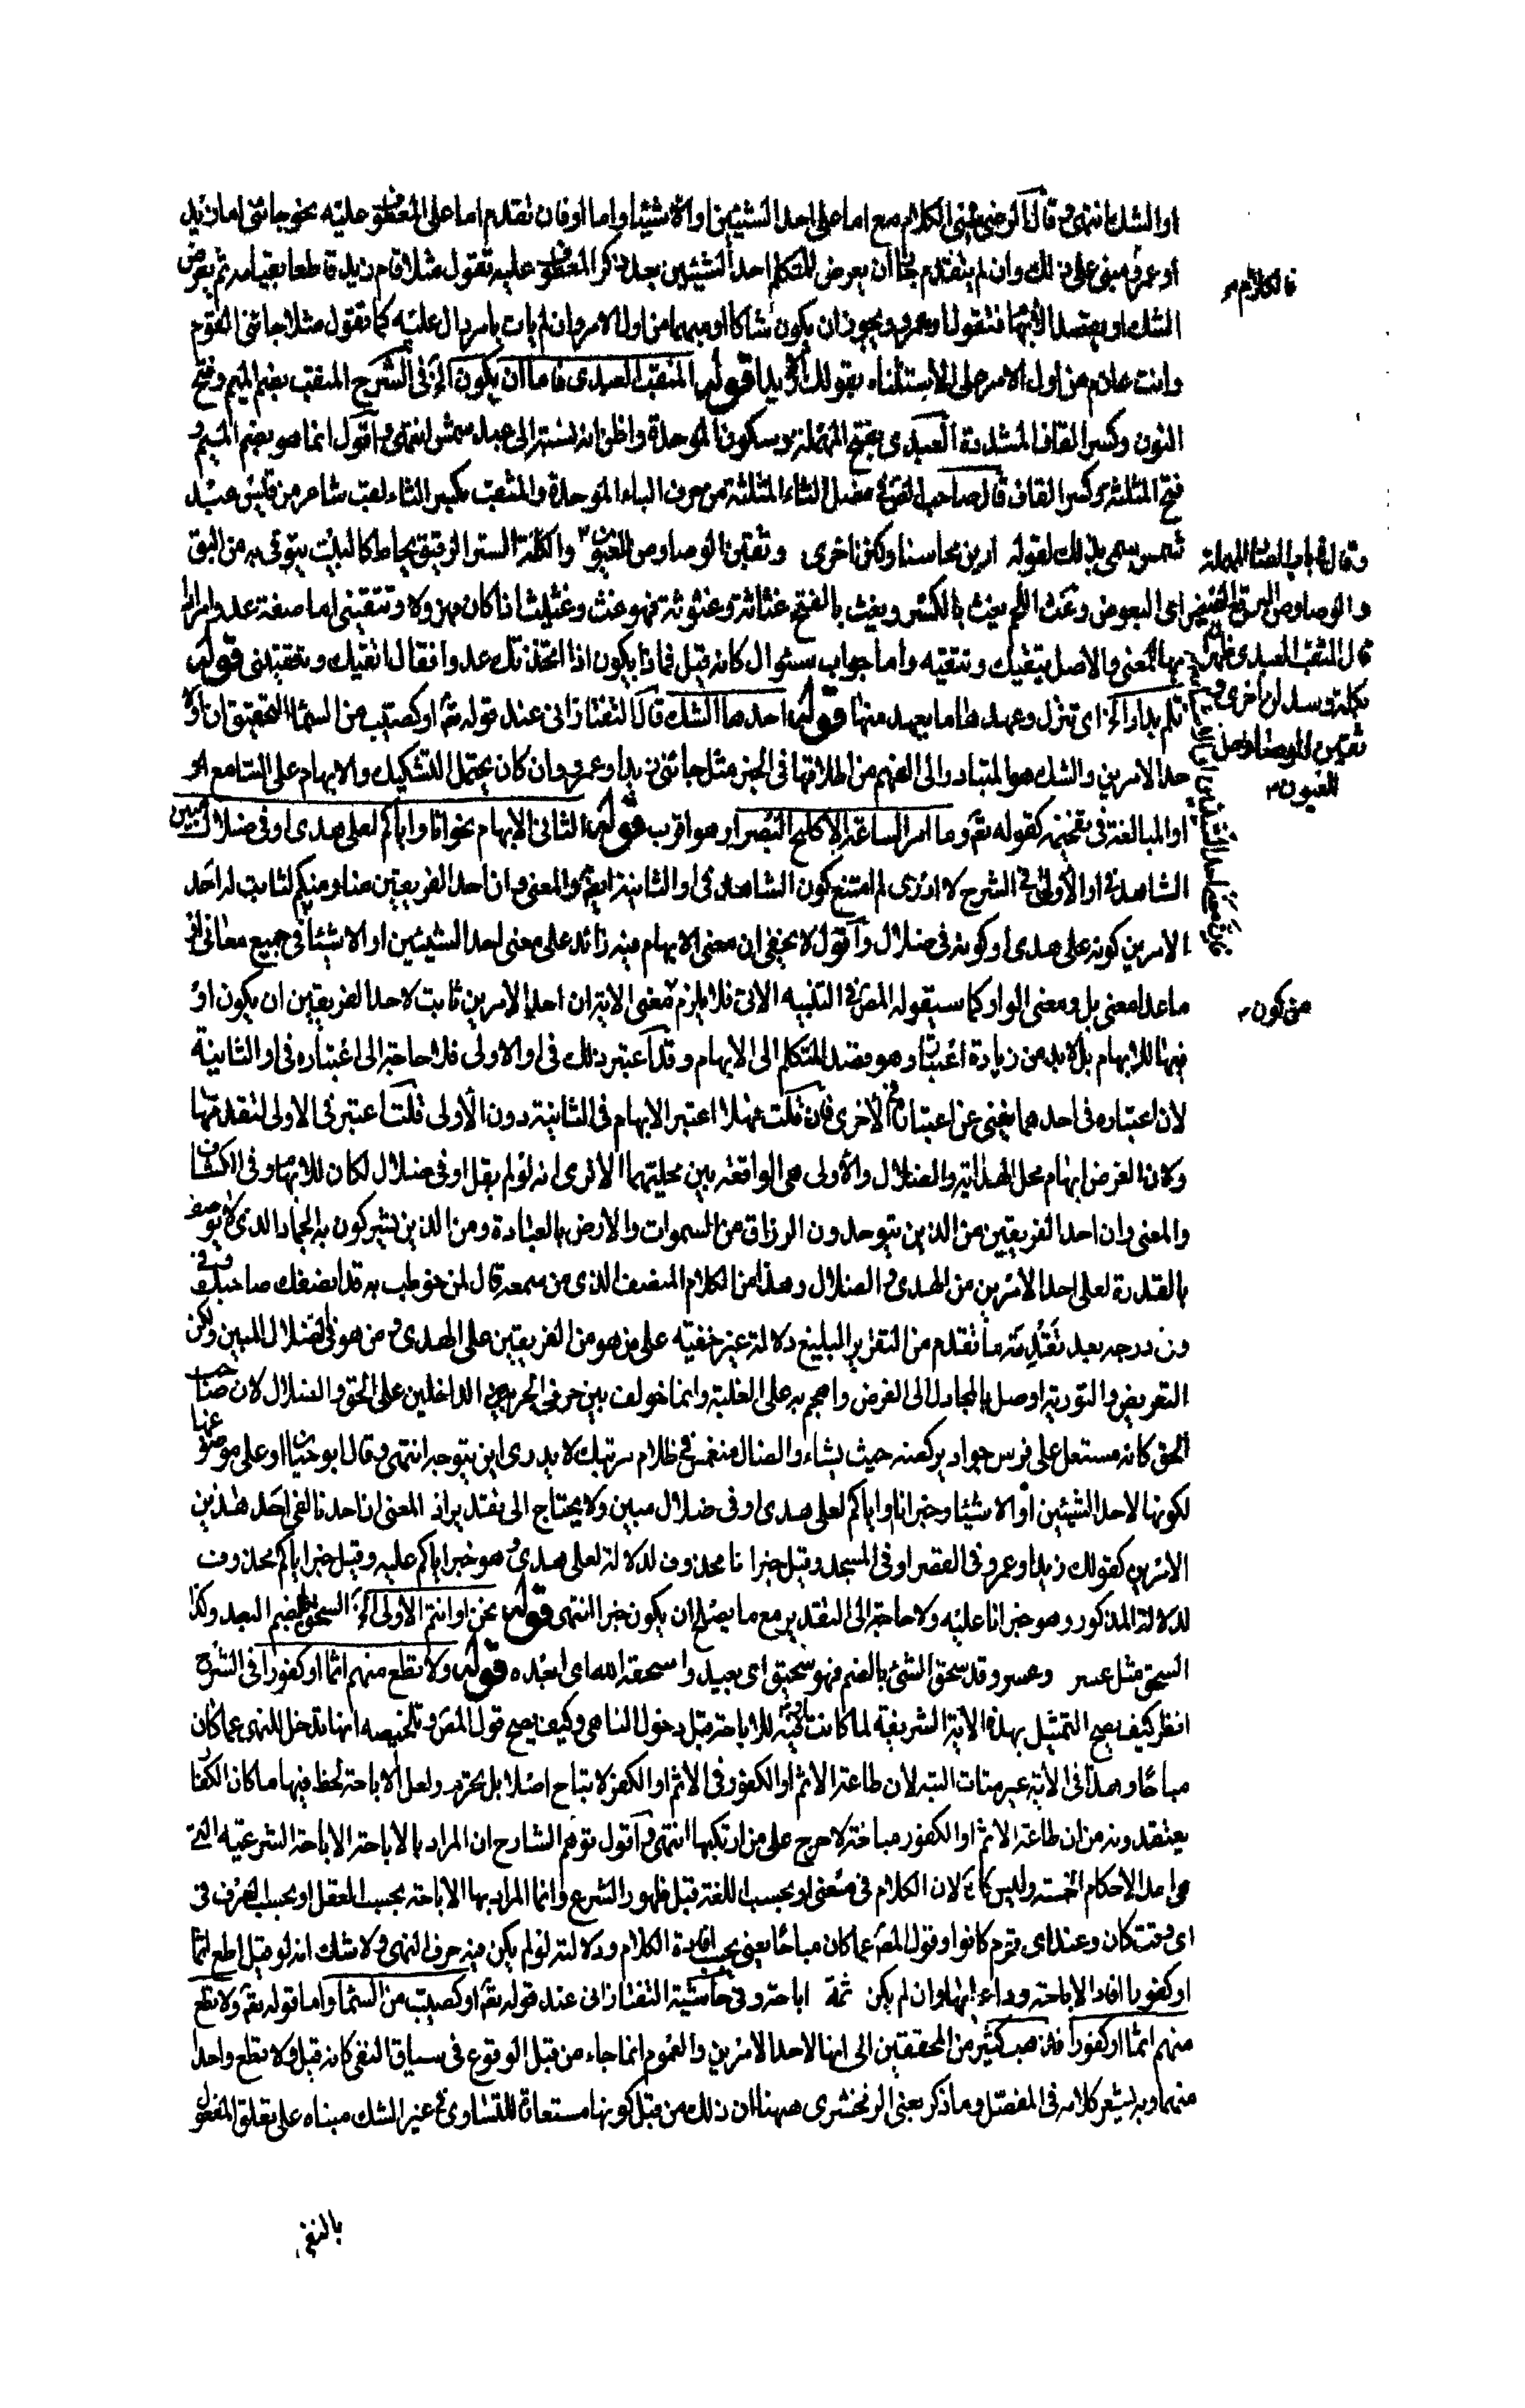 او الشك انتهى وقال الرضى مبنى الكلام مع اما على احد الشيئين او الاشياء واما او فان تقدم اما على المعطوف عليه نحو جائنى اما زيد
او عمرو مبنى على ذلك وان لم يتقدم جاز ان يعرض للمتكلم احد الشيئين بعد ذكر المعطوف عليه تقول مثلا قام زيد قاطعا بقيامه ثم يعرض
فالكلام
الشك او يقصد الابهام فتقول او عمرو ويجوز ان يكون شاكا او مبهما من اول الامر وان لم يات بامر دال عليه كما تقول مثلا جائنى القوم
وانت عازم من اول الامر على الاستثناء بقولك الا زيدا قوله المثقب العبدى فاما ان يكون الخ فى الشرح المنقب بضم الميم وفتح
النون وكسر القاف المشددة العبدى بفتح المهملة وسكون الموحدة واظن انه نسبة الى عبد شمس انتهى واقول انما هو بضم الميم و
فتح المثلثة وكسر القاف قال صاحب فصل الثاء المثلثة من حرف الباء الموحدة والمثقب بكسر الثاء لقب شاعر من قيس عبد
شمس سمى بذلك لقوله ارين محاسنا وكنن اخرى وثقبن الوصاوص للعيون والكلة الستر الرقيق يخاط كالبيت يتوقى به من البق
وقال فى باب الصاد المهملة
والوصاوص البرقع الصغير اى البعوض وغث اللحم يغث بالكسر ويغث بالفتح غثاثة وغثوثة فهو غث وغثيث اذا كان مهزولا وتتقينى اما صفة عدوا مرادا
قال المثقب العبدى ظهرن
بها المعنى والاصل يتقيك وتتقيه واما جواب سئوال كانه قيل فماذا يكون اذا اتخذتك عدوا فقال اتقيك وتتقينى قوله
بكلة وسدلن اخرى و
تلم بدار الخ اى تنزل وعهدها ما يعهد منها قوله احدها الشك قال التفتازانى عند قوله تع او كصيب من السماء التحقيق ان او لا
ثقبن الوصاوص
حد الامرين والشك هو المتبادر الى الفهم من اطلاقها فى الخبر مثل جائنى زيد او عمرو وان كان يحتمل التشكيك والابهام على السامع
للعيون
او المبالغة فى تفخيمه كقوله تع وما امر الساعة الا كلمح البصر او هو اقرب قوله الثانى الابهام نحو انا واياكم لعلى هدى او فى ضلال مبين
الشاهد فى او الاولى فى الشرح لا ادرى لم امتنع كون الشاهد فى او الثانية ايض والمعنى وان احد الفريقين منا ومنكم لثابت له احد
الامرين كونه على هدى او كونه فى ضلال واقول لا يخفى ان معنى الابهام فيه زائد على معنى احد الشيئين او الاشياء فى جميع معانى او
ما عدا معنى بل ومعنى الواو كما سيقوله المص فى التنبيه الاتى فلا يلزم معنى الاية ان احد الامرين ثابت لاحد الفريقين ان يكون او
من كون
فيها للابهام بل لا بد من زيادة اعتبار وهو قصد المتكلم الى الابهام وقد اعتبر ذلك فى او الاولى فلا حاجة الى اعتباره فى او الثانية
لان اعتباره فى احدهما يغنى عن اعتباره فى الاخرى فان قلت فهلا اعتبر الابهام فى الثانية دون الاولى قلت اعتبر فى الاولى لتقدمها
وكان الغرض ابهام محل الهداية والضلال والاولى هى الواقعة بين محليهما الا ترى انه لو لم يقل او فى ضلال لكان للابهام وفى الكشاف
والمعنى وان احد الفريقين من الذين يتوحدون الرزاق من السموات والارض بالعبادة ومن الذين يشركون به الجماد الذى لا يوصف
بالقدرة لعلى احد الامرين من الهدى والضلال وهذا من الكلام المنصف الذى من سمعه قال لمن خوطب به قد انصفك صاحبك وفى
درجه بعد تقدمة ما تقدم من التقرير البليغ دلالة غير خفية على من هو من الفريقين على الهدى ومن هو فى الضلال المبين ولكن
التعريض والتورية اوصل بالمجادل الى الغرض واهجم به على الغلبة وانما خولف بين حرفى الجر الداخلين على الحق والضلال لان صاحب
الحق كانه مستعل على فرس جواد يركضه حيث يشاء والضال منغمس فى ظلام مرتبك لا يدرى اين يتوجه انتهى وقال ابو حيان او على موضوعها
لكونها لاحد الشيئين او الاشياء وخبر انا واياكم لعلى هدى او فى ضلال مبين ولا يحتاج الى تقدير اذ المعنى ان احدنا لفى احد هذين
الامرين كقولك زيد او عمرو فى القصر او فى المسجد وقيل خبر انا محذوف لدلالة لعلى هدى وهو خبر اياكم عليه وقيل خبر اياكم محذوف
لدلالة المذكور وهو خبر انا عليه ولا حاجة الى التقدير مع ما يصلح ان يكون خبرا انتهى قوله نحن او انتم الاولى الخ السحق بضم البعد وكذا
السحق مثل عسر وعسر وقد سحق الشئ بالضم فهو سحيق اى بعيد واسحقه الله اى ابعده قوله ولا تطع منهم اثما او كفورا فى الشرح
انظر كيف يصح التمثيل بهذه الاية الشريفة لما كانت فيه للاباحة قبل دخول الناهى وكيف يصح قول المص وتلخيصه انها تدخل للنهى عما كان
مباحا وهذا فى الاية غير متات البتة لان طاعة الاثم او الكفور فى الاثم او الكفر لا تباح اصلا بل يحرم ولعل الاباحة لحظ فيها ما كان الكفار
يعتقدونه من ان طاعة الاثم او الكفور مباحة لا حرج على من ارتكبها انتهى واقول توهم الشارح ان المراد بالاباحة الاباحة الشرعية التى
هى احد الاحكام الخمسة وليس كك لان الكلام فى معنى او بحسب اللغة قبل ظهور الشرع وانما المراد بها الاباحة بحسب العقل او بحسب العرف فى
اى وقت كان وعند اى قوم كانوا وقول المص عما كان مباحا يعنى بحسب افادة الكلام ودلالته لو لم يكن فيه حرف النهى ولا شك انه لو قيل اطع اثما
او كفورا افاد الاباحة وان لم يكن ثمة اباحة وفى حاشية التفتازانى عند قوله تع او كصيب من السماء واما قوله تع ولا تطع
منهم اثما او كفورا فذهب كثير من المحققين الى انها لاحد الامرين والعموم انما جاء من قبل الوقوع فى سياق النفى كانه قيل ولا تطع واحدا
منهما وبه يشعر كلامه فى المفصل وما ذكر يعنى الزمخشرى ههنا ان ذلك من قبل كونها مستعارة للتساوى فى غير الشك مبناه على تعلق المفعول
بالنفى